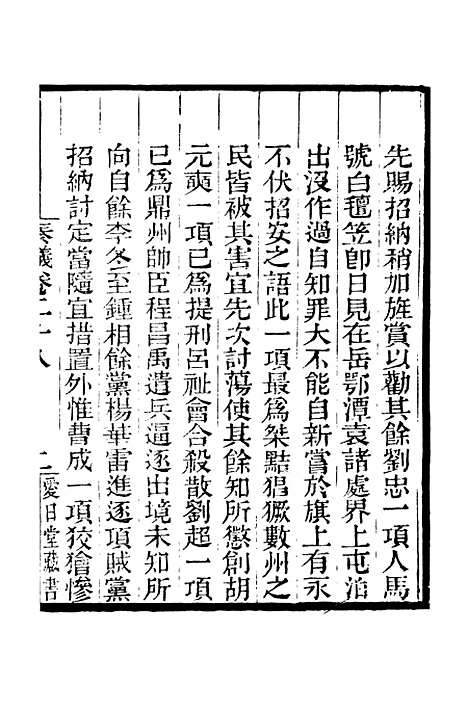 先賜招納稍加旌賞以勸其餘劉忠一項人馬
號白氊笠卽日見在岳鄂潭袁諸處界上屯泊
出沒作過自知罪大不能自新嘗於旗上有永
不伏招安之語此一項最爲桀黠猖獗數州之
民皆被其害宜先次討蕩使其餘知所懲創胡
元奭一項已爲提刑呂祉會合殺散劉超一項
已爲鼎州帥臣程昌禹遺兵逼逐出境未知所
向自餘李冬至鍾相餘黨楊華雷進逐項賊黨
招納討定當隨宜措置外惟曹成一項狡獪慘
奏議卷二十八
二
愛日堂藏書